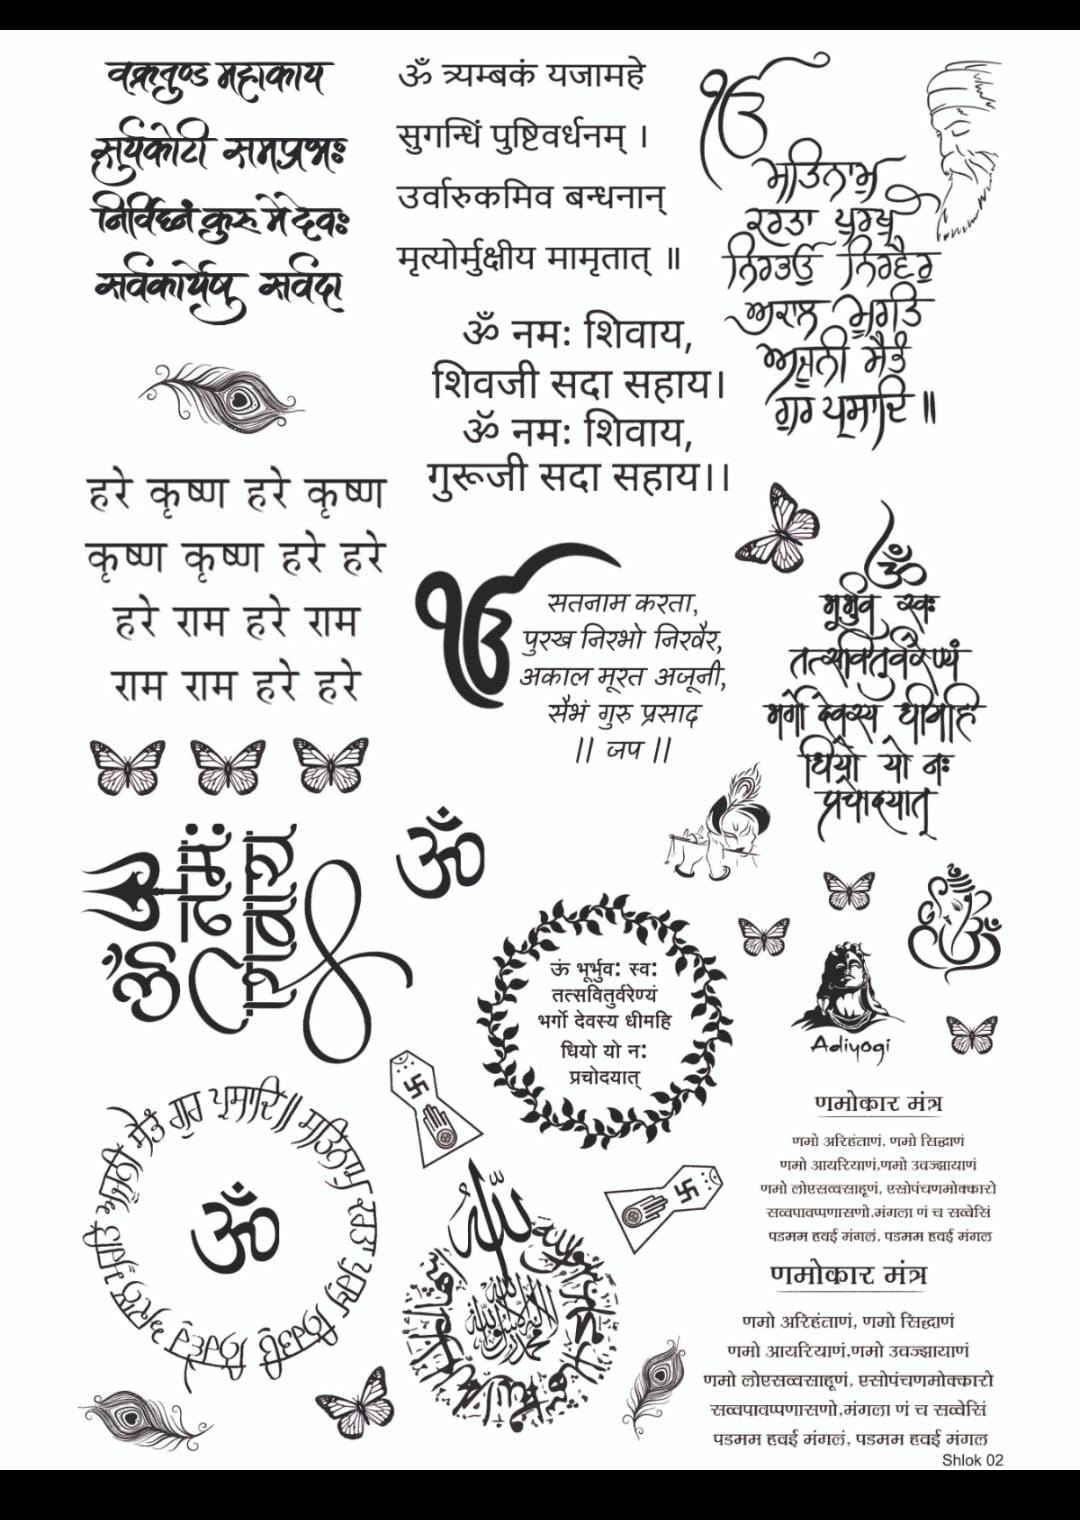 वक्रतुण्ड महाकाय
सुर्यकोटी समप्रभः
निर्विघ्नं कुरु मे देवः
सर्वकार्येषु सर्वदा
ॐ त्र्यम्बकं यजामहे
सुगन्धिं पुष्टिवर्धनम् ।
उर्वारुकमिव बन्धनान्
मृत्योर्मुक्षीय मामृतात् ॥
ੴ
ਸਤਿਨਾਮੁ
ਕਰਤਾ ਪੁਰਖੁ
ਨਿਰਭਉ ਨਿਰਵੈਰੁ
ਅਕਾਲ ਮੂਰਤਿ
ਅਜੂਨੀ ਸੈਭੰ
ਗੁਰ ਪ੍ਰਸਾਦਿ ॥
ॐ नमः शिवाय,
शिवजी सदा सहाय।
ॐ नमः शिवाय,
गुरूजी सदा सहाय।।
हरे कृष्ण हरे कृष्ण
कृष्ण कृष्ण हरे हरे
हरे राम हरे राम
राम राम हरे हरे
ੴ
सतनाम करता,
पुरख निरभो निरवैर,
अकाल मूरत अजूनी,
सैभं गुरु प्रसाद
|| जप ||
ॐ
भूर्भुव स्वः
तत्सवितुर्वरेण्यं
भर्गो देवस्य धीमहि
धियो यो नः
प्रचोदयात्
ॐ
नमः
शिवाय
ॐ
ऊं भूर्भुवः स्वः
तत्सवितुर्वरेण्यं
भर्गो देवस्य धीमहि
धियो यो नः
प्रचोदयात्
ॐ
Adiyogi
ਸਤਿਨਾਮੁ ਕਰਤਾ ਪੁਰਖੁ ਨਿਰਭਉ ਨਿਰਵੈਰੁ ਅਕਾਲ ਮੂਰਤਿ ਅਜੂਨੀ ਸੈਭੰ ਗੁਰ ਪ੍ਰਸਾਦਿ ॥
ॐ
णमोकार मंत्र
णमो अरिहंताणं, णमो सिद्धाणं
णमो आयरियाणं,णमो उवज्झायाणं
णमो लोएसव्वसाहूणं, एसोपंचणमोक्कारो
सव्वपावप्पणासणो,मंगला णं च सव्वेसिं
पडमम हवई मंगलं, पडमम हवई मंगल
णमोकार मंत्र
णमो अरिहंताणं, णमो सिद्धाणं
णमो आयरियाणं,णमो उवज्झायाणं
णमो लोएसव्वसाहूणं, एसोपंचणमोक्कारो
सव्वपावप्पणासणो,मंगला णं च सव्वेसिं
पडमम हवई मंगलं, पडमम हवई मंगल
Shlok 02